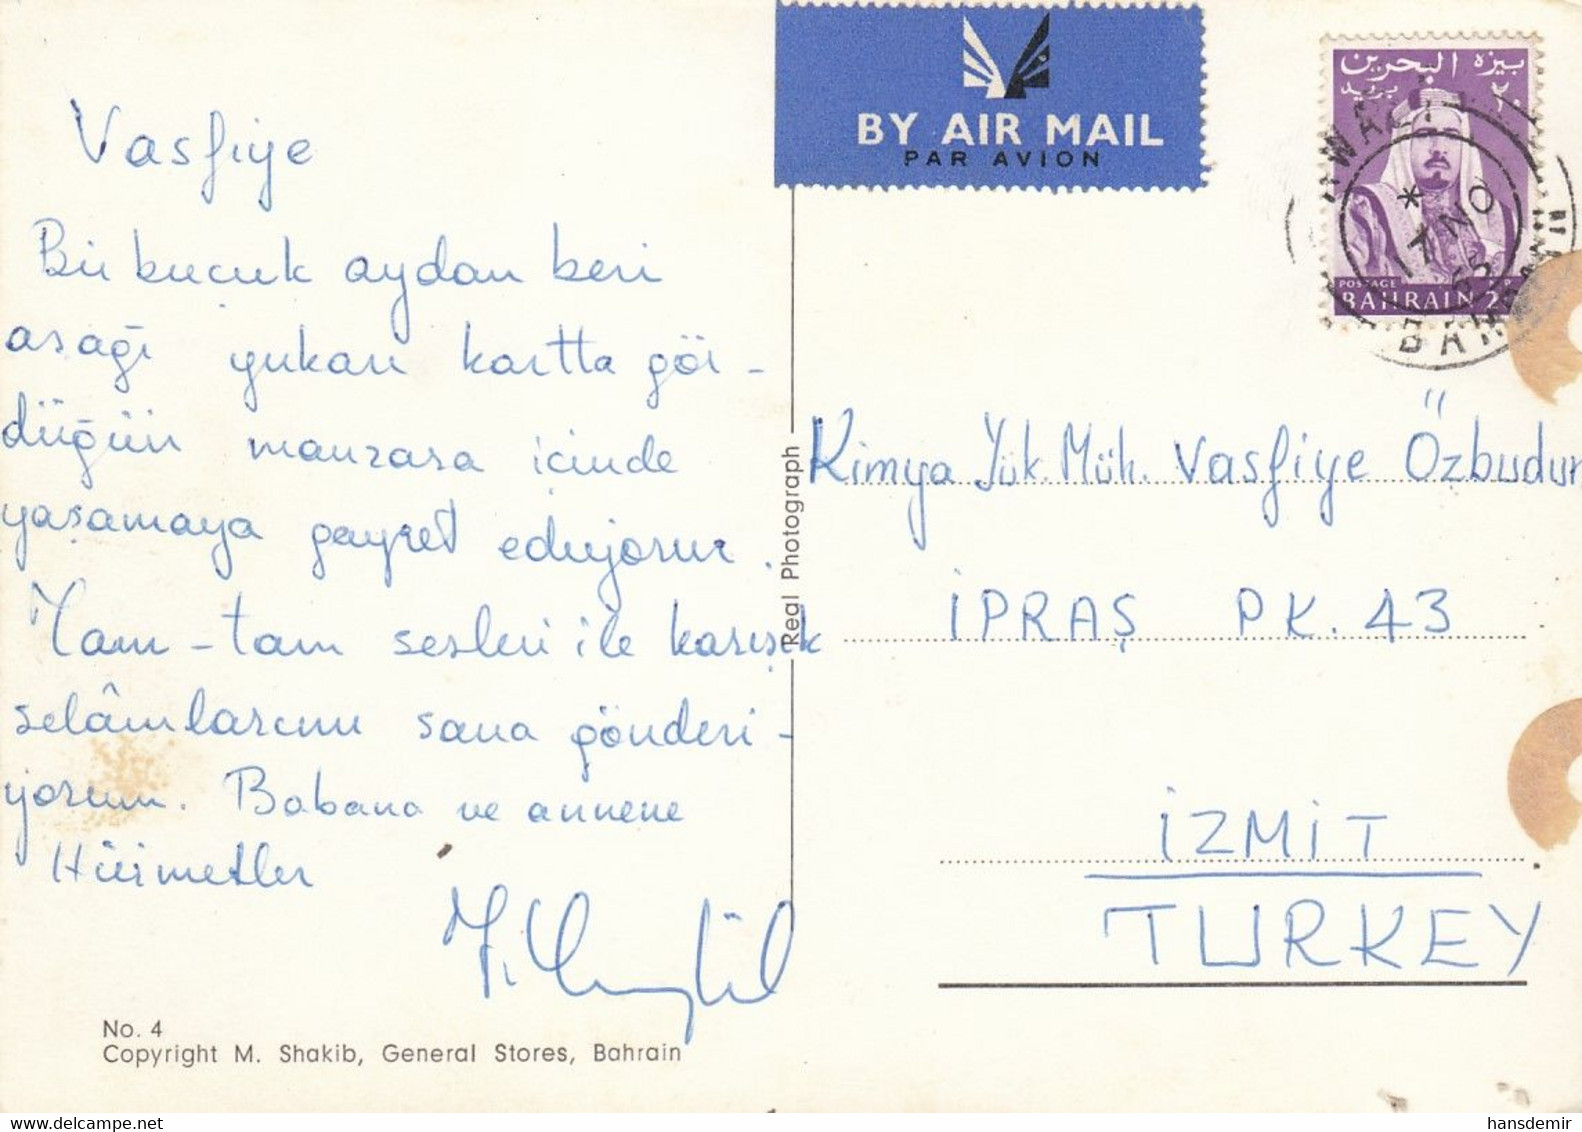 Vasfiye
Bir buçuk aydan beri
aşağı yukarı kartta gör-
düğün manzara içinde
yaşamaya gayret ediyorum.
Tam-tam sesleri ile karışık
selâmlarımı sana gönderi-
yorum. Babana ve annene
Hürmetler
No. 4
Copyright M. Shakib, General Stores, Bahrain
Real Photograph
BY AIR MAIL
PAR AVION
بيزه البحرين
٢٠ بريد
POSTAGE
BAHRAIN
AWALI
17 NO
BAHRAIN
Kimya Yük. Müh. Vasfiye Özbudun
İPRAŞ PK. 43
İZMİT
TURKEY
hansdemir